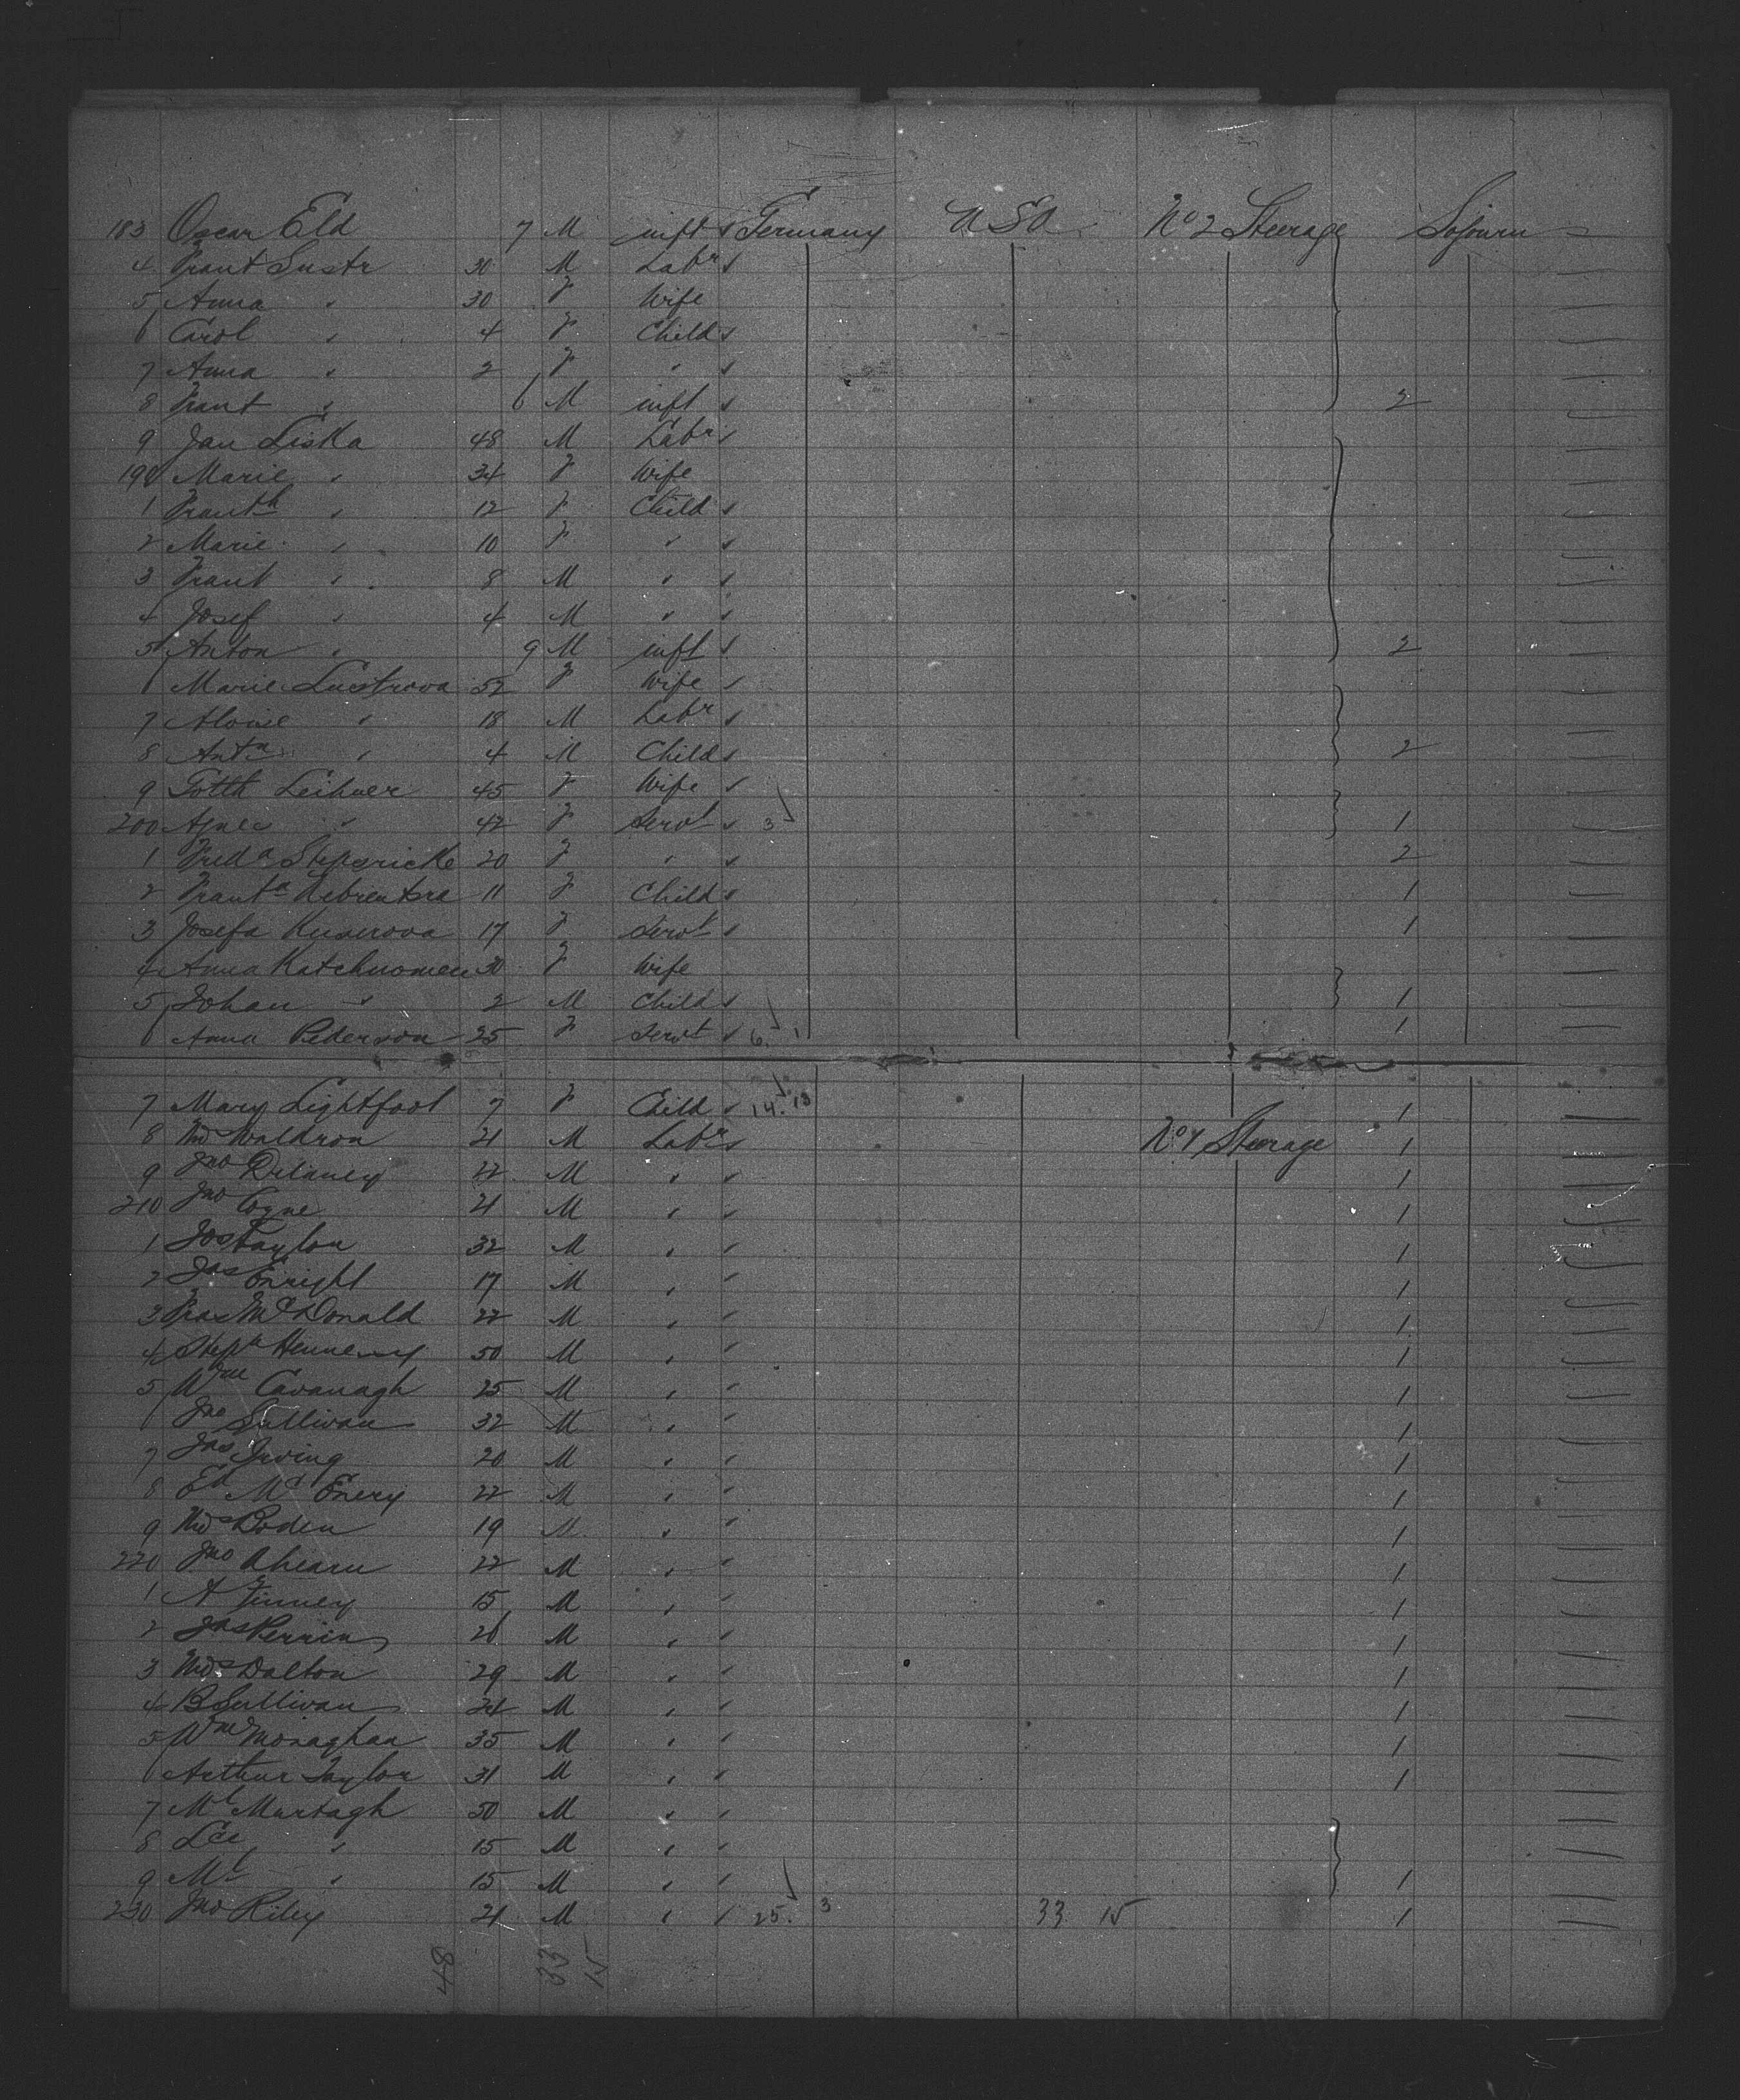 183 Oscar Eld 7 M inft s Germany U S A. No 2 Steerage Sojourn
4 Frant Sustr 30 M Labr s
5 Anna " 30 F Wife
6 Carol " 4 F Child s
7 Anna " 2 F " s
8 Frant " 6 M inft s 2
9 Jan Liska 48 M Labr s
190 Marie " 34 F Wife
1 Frantk " 12 F Child s
2 Marie " 10 F " s
3 Frant " 8 M " s
4 Josef " 4 M " s
5 Anton " 9 M inft s 2
6 Marie 52 F Wife s
7 Aloise " 18 M Labr s
8 Anta " 4 M Child s 2
9 Gotth Leibner 45 F Wife s
200 Agnes " 42 F Servt s 3 1
1 Freda 20 F " s 2
2 Franta 11 F Child s 1
3 Josefa Kuserova 17 F Servt s 1
4 Anna 30 F Wife
5 Johan " 2 M Child s 1
6 Anna Pederson 25 F Servt s 6. 1 1
7 Mary Lightfoot 7 F Child s 14. 13 1
8 Thos Waldron 21 M Labr s No 1 Steerage 1
9 Jno Delaney 22 M " " 1
210 Jno Coyne 21 M " " 1
1 Jos Taylor 32 M " " 1
2 Jas Enright 17 M " " 1
3 Fras McDonald 22 M " " 1
4 Stepn Hennessy 50 M " " 1
5 Wm Cavanagh 25 M " " 1
6 Jno Sullivan 32 M " " 1
7 Jas Irving 20 M " " 1
8 Ed McEnery 22 M " " 1
9 Thos Boden 19 M " " 1
220 Jno Ahearn 22 M " " 1
1 A Finney 15 M " " 1
2 Jas Perrin 26 M " " 1
3 Thos Dalton 29 M " " 1
4 B Sullivan 24 M " " 1
5 Wm Monaghan 35 M " " 1
6 Arthur Taylor 31 M " " 1
7 Ml Murtagh 50 M " "
8 Lce " 15 M " "
9 Ml " 15 M " " 1
230 Jno Riley 21 M " " 25. 3 33 15 1
48 33 15